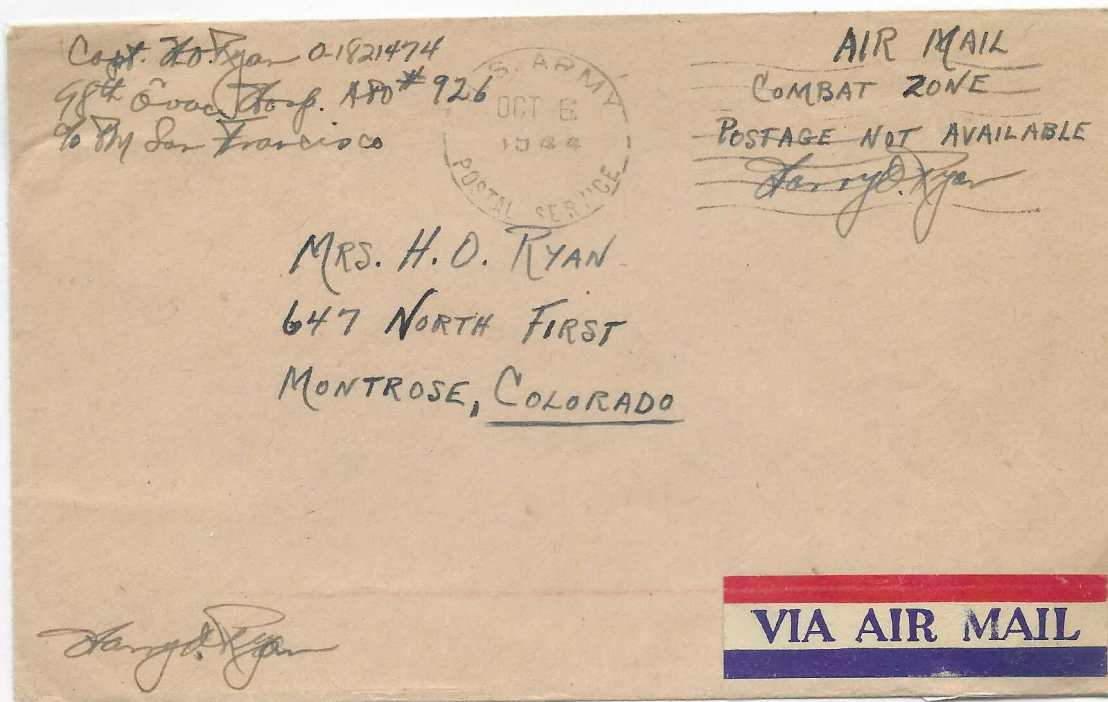 Capt. H.O. Ryan O-1821474
98th Evac Hosp. APO # 926
c/o PM San Francisco
U.S. ARMY
OCT 6
1944
POSTAL SERVICE
AIR MAIL
COMBAT ZONE
POSTAGE NOT AVAILABLE
Harry O. Ryan
MRS. H. O. RYAN
647 NORTH FIRST
MONTROSE, COLORADO
Harry O. Ryan
VIA AIR MAIL